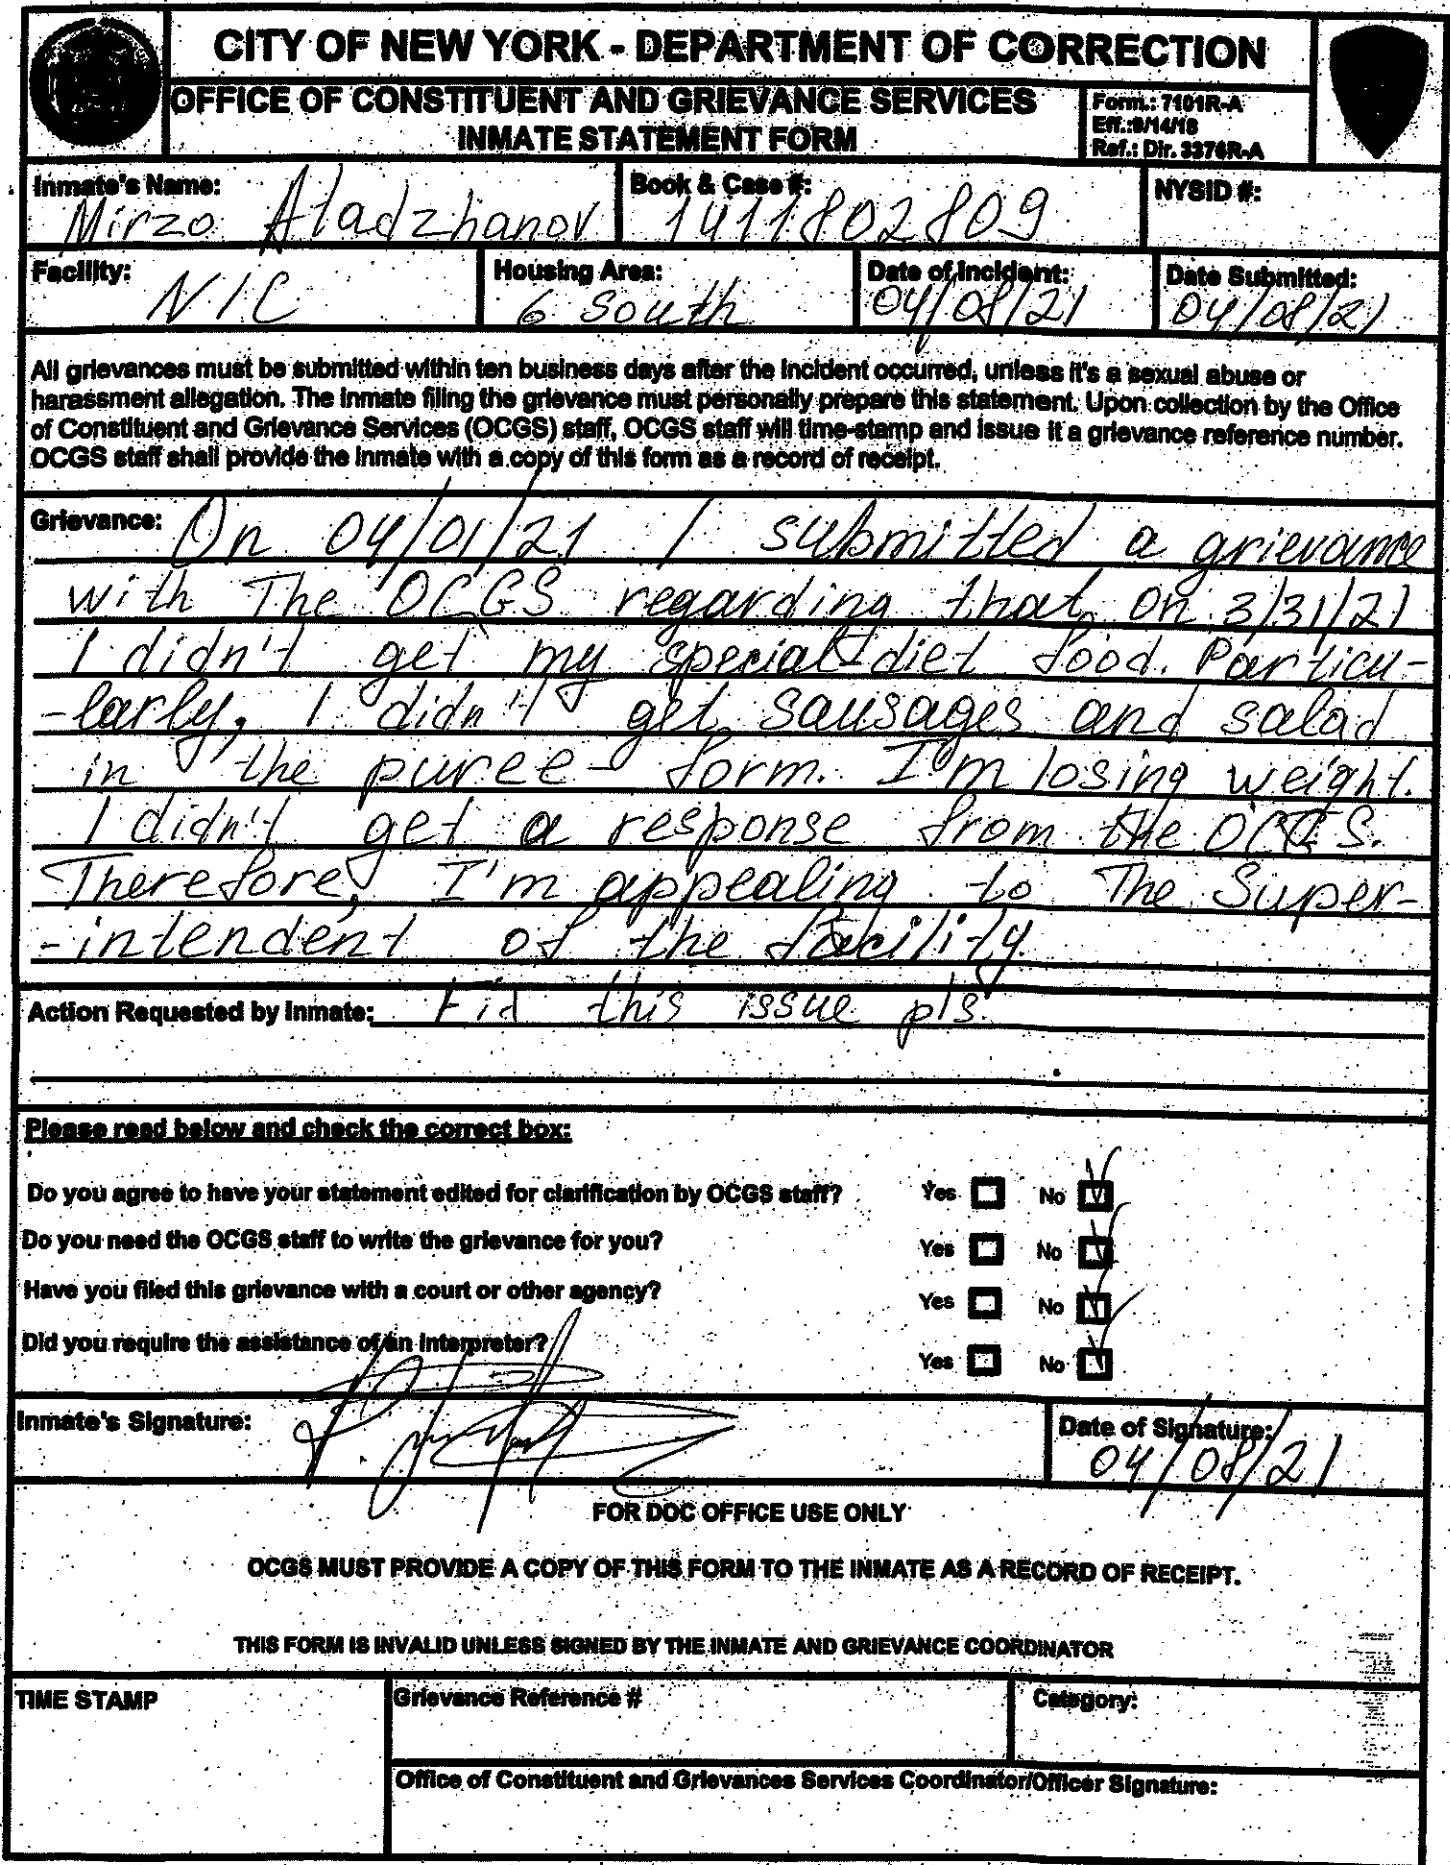 CITY OF NEW YORK - DEPARTMENT OF CORRECTION
OFFICE OF CONSTITUENT AND GRIEVANCE SERVICES
INMATE STATEMENT FORM
Form.: 7101R-A
Eff.:9/14/18
Ref.: Dir. 3376R-A
Inmate's Name: Mirzo Atadzhanov
Book & Case #: 1411802809
NYSID #:
Facility: NIC
Housing Area: 6 South
Date of Incident: 04/08/21
Date Submitted: 04/08/21
All grievances must be submitted within ten business days after the incident occurred, unless it's a sexual abuse or
harassment allegation. The inmate filing the grievance must personally prepare this statement. Upon collection by the Office
of Constituent and Grievance Services (OCGS) staff, OCGS staff will time-stamp and issue it a grievance reference number.
OCGS staff shall provide the inmate with a copy of this form as a record of receipt.
Grievance: On 04/01/21 I submitted a grievance
with The OCGS regarding that on 3/31/21
I didn't get my special diet food. Particu-
-larly, I didn't get sausages and salad
in the puree- form. I'm losing weight.
I didn't get a response from the OCGS.
Therefore, I'm appealing to The Super-
-intendent of the facility.
Action Requested by Inmate: this issue pls.
Please read below and check the correct box:
Do you agree to have your statement edited for clarification by OCGS staff? Yes No
Do you need the OCGS staff to write the grievance for you? Yes No
Have you filed this grievance with a court or other agency? Yes No
Did you require the assistance of an interpreter? Yes No
Inmate's Signature:
Date of Signature: 04/08/21
FOR DOC OFFICE USE ONLY
OCGS MUST PROVIDE A COPY OF THIS FORM TO THE INMATE AS A RECORD OF RECEIPT.
THIS FORM IS INVALID UNLESS SIGNED BY THE INMATE AND GRIEVANCE COORDINATOR
TIME STAMP
Grievance Reference #
Category:
Office of Constituent and Grievances Services Coordinator/Officer Signature: